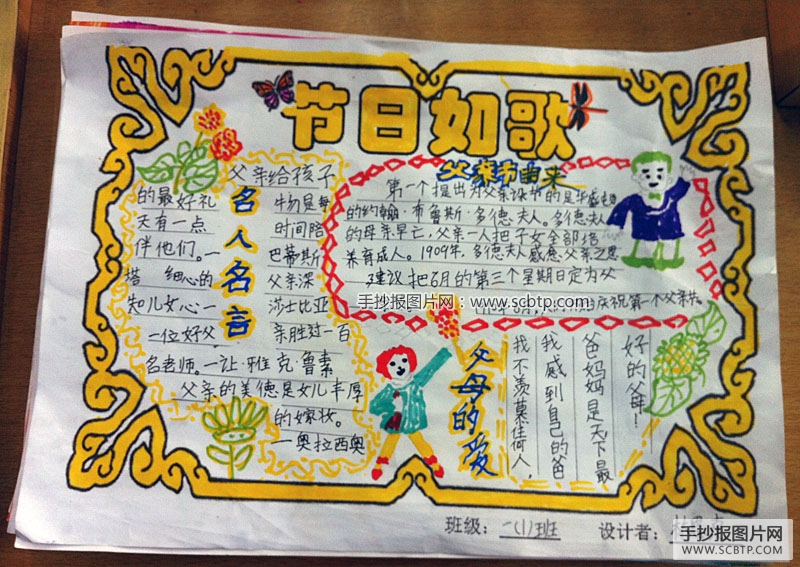 节日如歌
名人名言
父亲给孩子
的最好礼物是每
天有一点时间陪
伴他们。一巴蒂斯
塔
细心的父亲深
知儿女心一莎士比亚
一位好父亲胜过一百
名老师。一让·雅克·鲁索
父亲的美德是女儿丰厚
的嫁妆。
一奥拉西奥
父亲节由来
第一个提出为父亲设节的是华盛顿
的约翰·布鲁斯·多德夫人。多德夫人
的母亲早亡，父亲一人把子女全部培
养育成人。1909年，多德夫人感念父亲之恩
建议把6月的第三个星期日定为父
庆祝第一个父亲节。
手抄报图片网：www.scbtp.com
父母的爱
好的父母！
爸妈妈是天下最
我感到自己的爸
我不羡慕任何人
班级：一(1)班
设计者：
手抄报图片网
WWW.SCBTP.COM